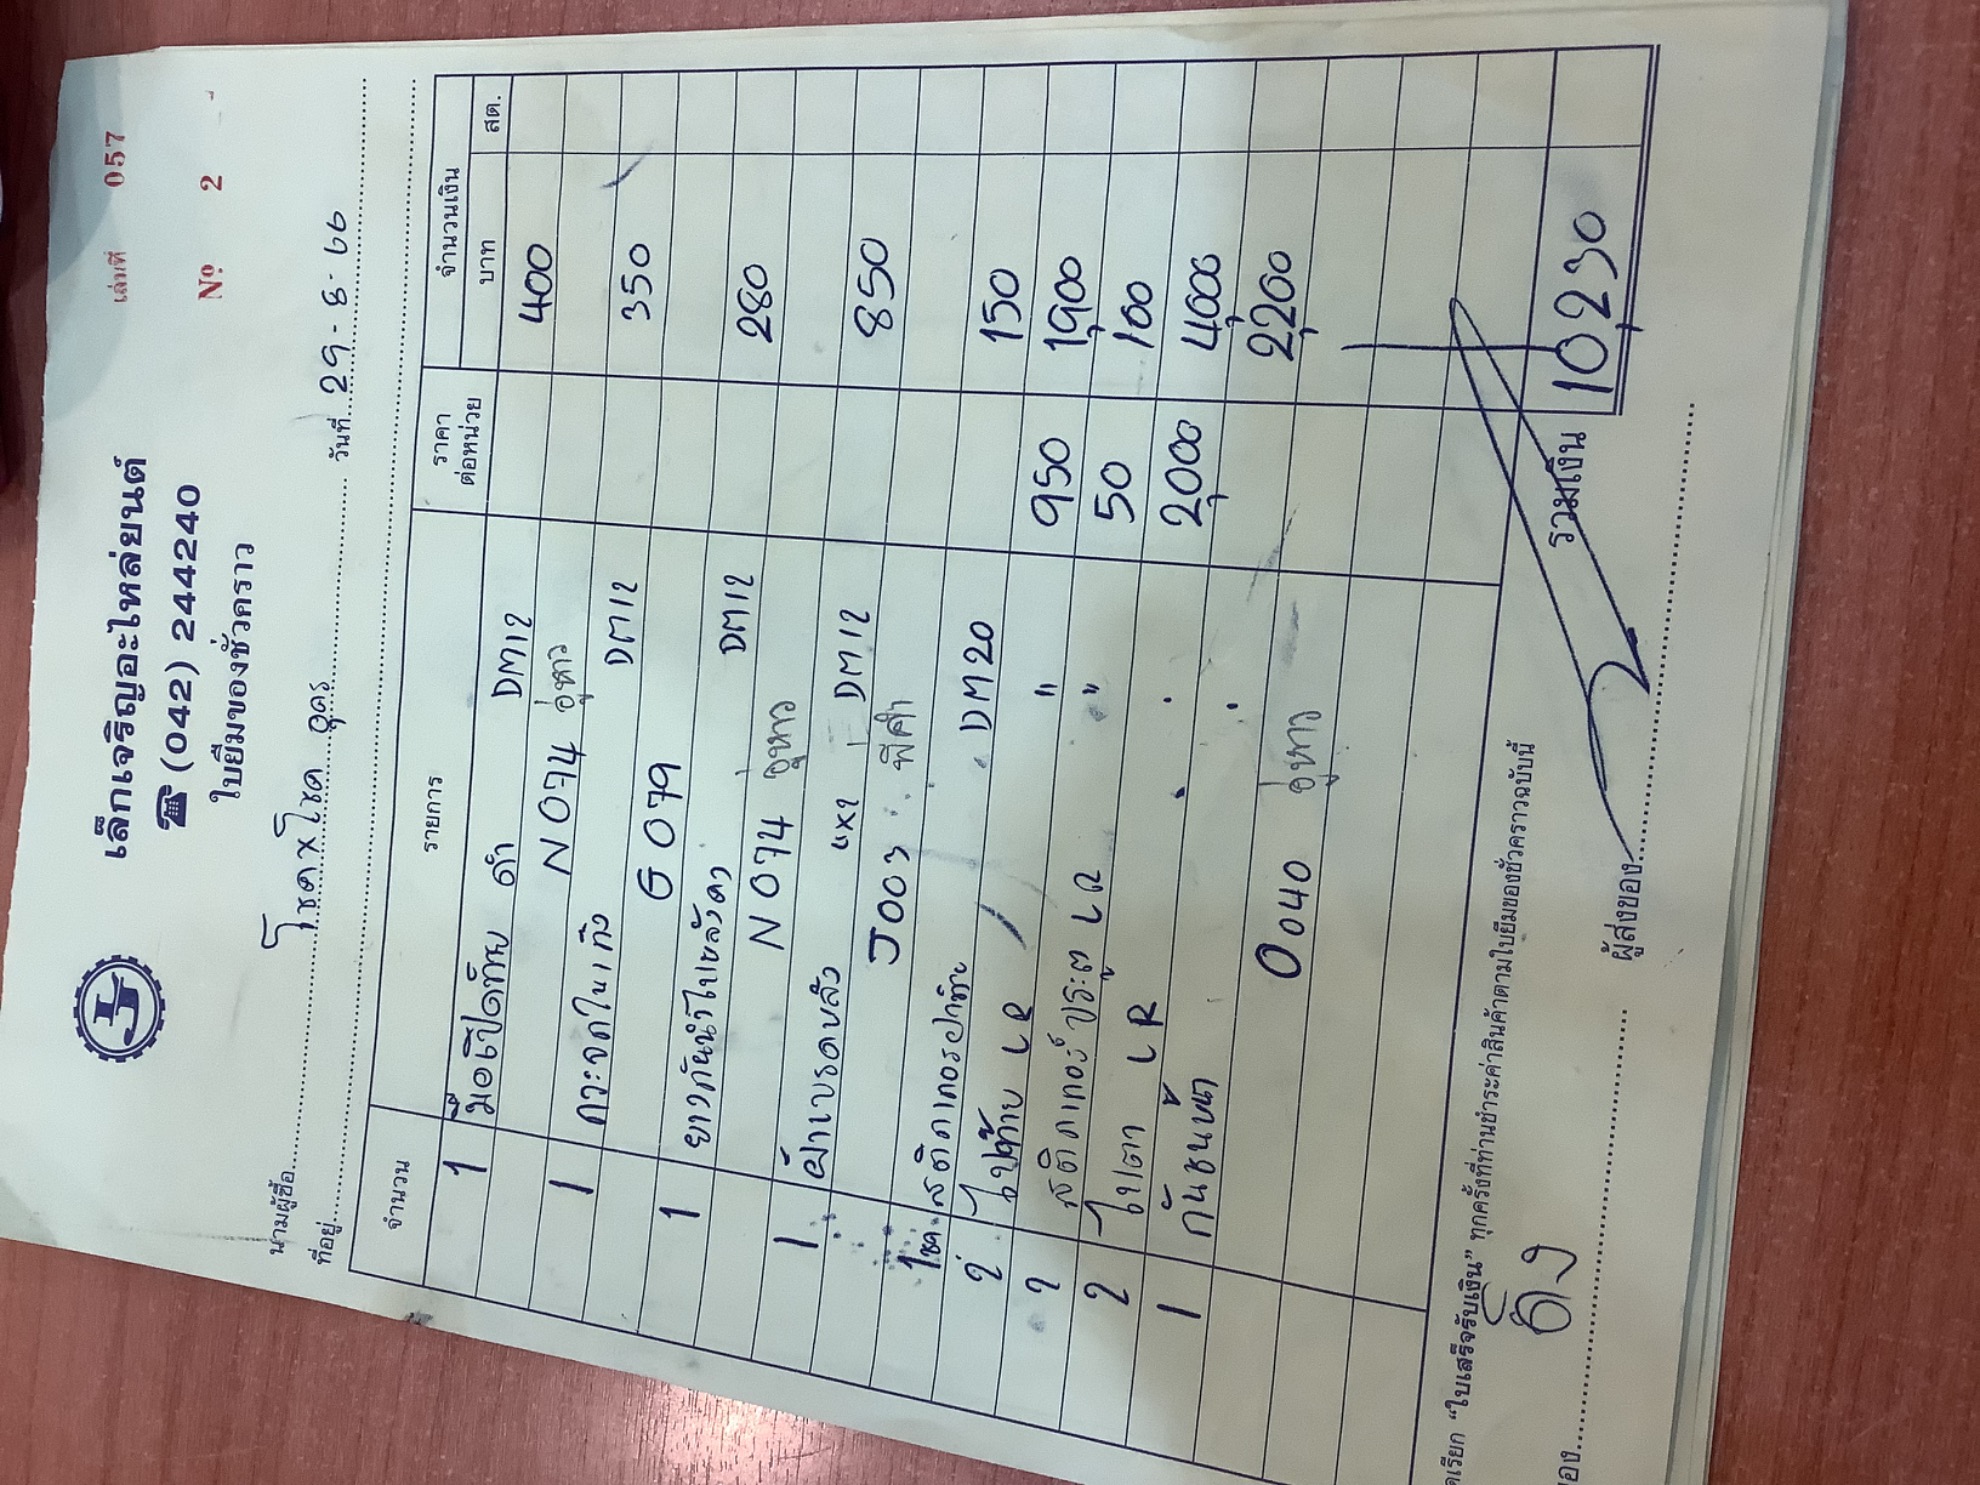 เล่มที่ 057
เล็กเจริญอะไหล่ยนต์
☎ (042) 244240
Nº 2
ใบยืมของชั่วคราว
นามผู้ซื้อ โชคxโชค อุดร วันที่ 29-8-66
ที่อยู่
จำนวน รายการ ราคาต่อหน่วย จำนวนเงิน
บาท สต.
1 มือเปิดท้าย ดำ DM12 400
N074 อู่หาว
1 DM12 350
G079
1 ยางกันน้ำใบหลังคา DM12 280
N074 อู่หาว
1 ฝาเบรคหลัง DM12 850
J003
1 ชุด สติกเกอร์ฝาท้าย DM20 150
2 ไฟท้าย LR " 950 1,900
2 สติกเกอร์ประตู LR " 50 100
2 ไฟตา LR 2,000 4,000
1 กันชนหน้า 2,200
0040 อู่หาว
รวมเงิน 10,230
เรียก "ใบเสร็จรับเงิน" ทุกครั้งที่ท่านชำระค่าสินค้าตามใบยืมของชั่วคราวฉบับนี้
ของ ผู้ส่งของ